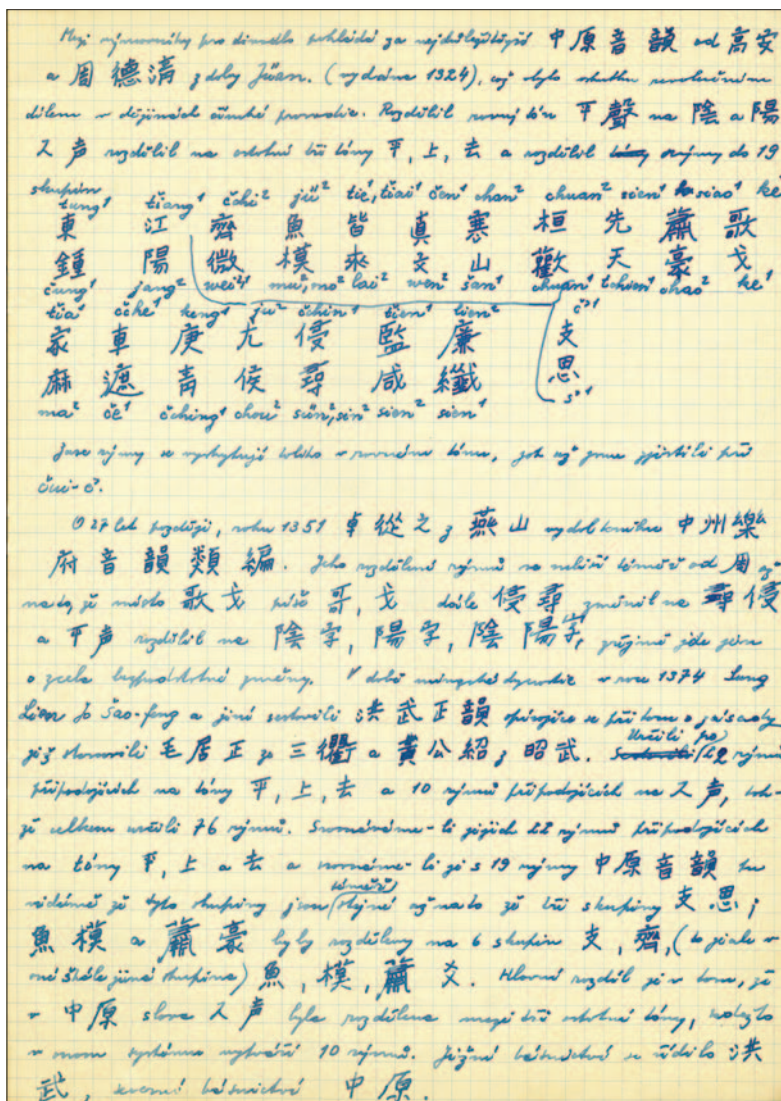 Mezi rýmovníky pro divadlo pokládá za nejdůležitější 中原音韻 od 高安
a 周德清 z doby Jüan. (vydáno 1324), což bylo skutku revolučním
dílem v dějinách čínské prosodie. Rozdělil rovný tón 平聲 na 陰 a 陽
入声 rozdělil na ostatní tři tóny 平, 上, 去 a rozdělil rýmy do 19
skupin
tung¹ ťiang¹ čchi² jü² tié¹, ťiai¹ čen¹ chan² chuan² sien¹ siao¹ ke¹
東 江 齊 魚 皆 真 寒 桓 先 蕭 歌
鍾 陽 微 模 來 文 山 歡 天 豪 戈
čung¹ jang² wei²⁴ mu², mo² lai² wen² šan¹ chuan¹ tchien¹ chao² ke¹
ťia¹ čche¹ keng¹ ju² čchin¹ ťien¹ lien² c'¹
家 車 庚 尤 侵 監 廉 支
麻 遮 青 侯 尋 咸 纖 思
ma² če¹ čching¹ chou² sün², sin² sien² sien¹ s'¹
Juse rýmy se vyskytují toliko v rovném tónu, jak už jsme zjistili při
O 27 let později, roku 1351 卓從之 z 燕山 vydal knihu 中州樂
府音韻類編. Jeho rozdělení rýmů se neliší téměř od 周 až
na to, že místo 歌戈 píše 哥, 戈 dále 侵尋 změnil na 尋侵
a 平声 rozdělil na 陰字, 陽字, 陰陽字, zřejmě jde jen
o zcela bezpodstatné změny. V době mingské dynastie v roce 1374 Sung
Lien Jo Šao-feng a jiní sestavili 洪武正韻 opírajíce se při tom o
již stanovili 毛居正 ze 三衢 a 黃公紹 z 昭武. Určili po 22 rýmů
připadajících na tóny 平, 上, 去 a 10 rýmů připadajících na 入声, tak-
že celkem určili 76 rýmů. Srovnáváme-li jejich 22 rýmů připadajících
na tóny 平, 上 a 去 a srovnáme-li je s 19 rýmy 中原音韻 tu
vidíme že tyto skupiny jsou (téměř) stejné až na to že tři skupiny 支思;
魚模 a 蕭豪 byly rozděleny na 6 skupin 支, 齊, (to je ale v
škále jiná skupina) 魚, 模, 蕭 爻. Hlavní rozdíl je v tom, že
v 中原 slova 入声 byla rozdělena mezi tři ostatní tóny, kdežto
v onom systému vytváří 10 rýmů. Jižní básnictví se řídilo 洪
武, severní básnictví 中原.